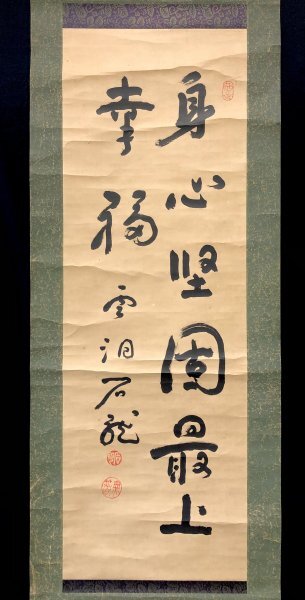 身心堅固最上
幸福
雲洞石龍